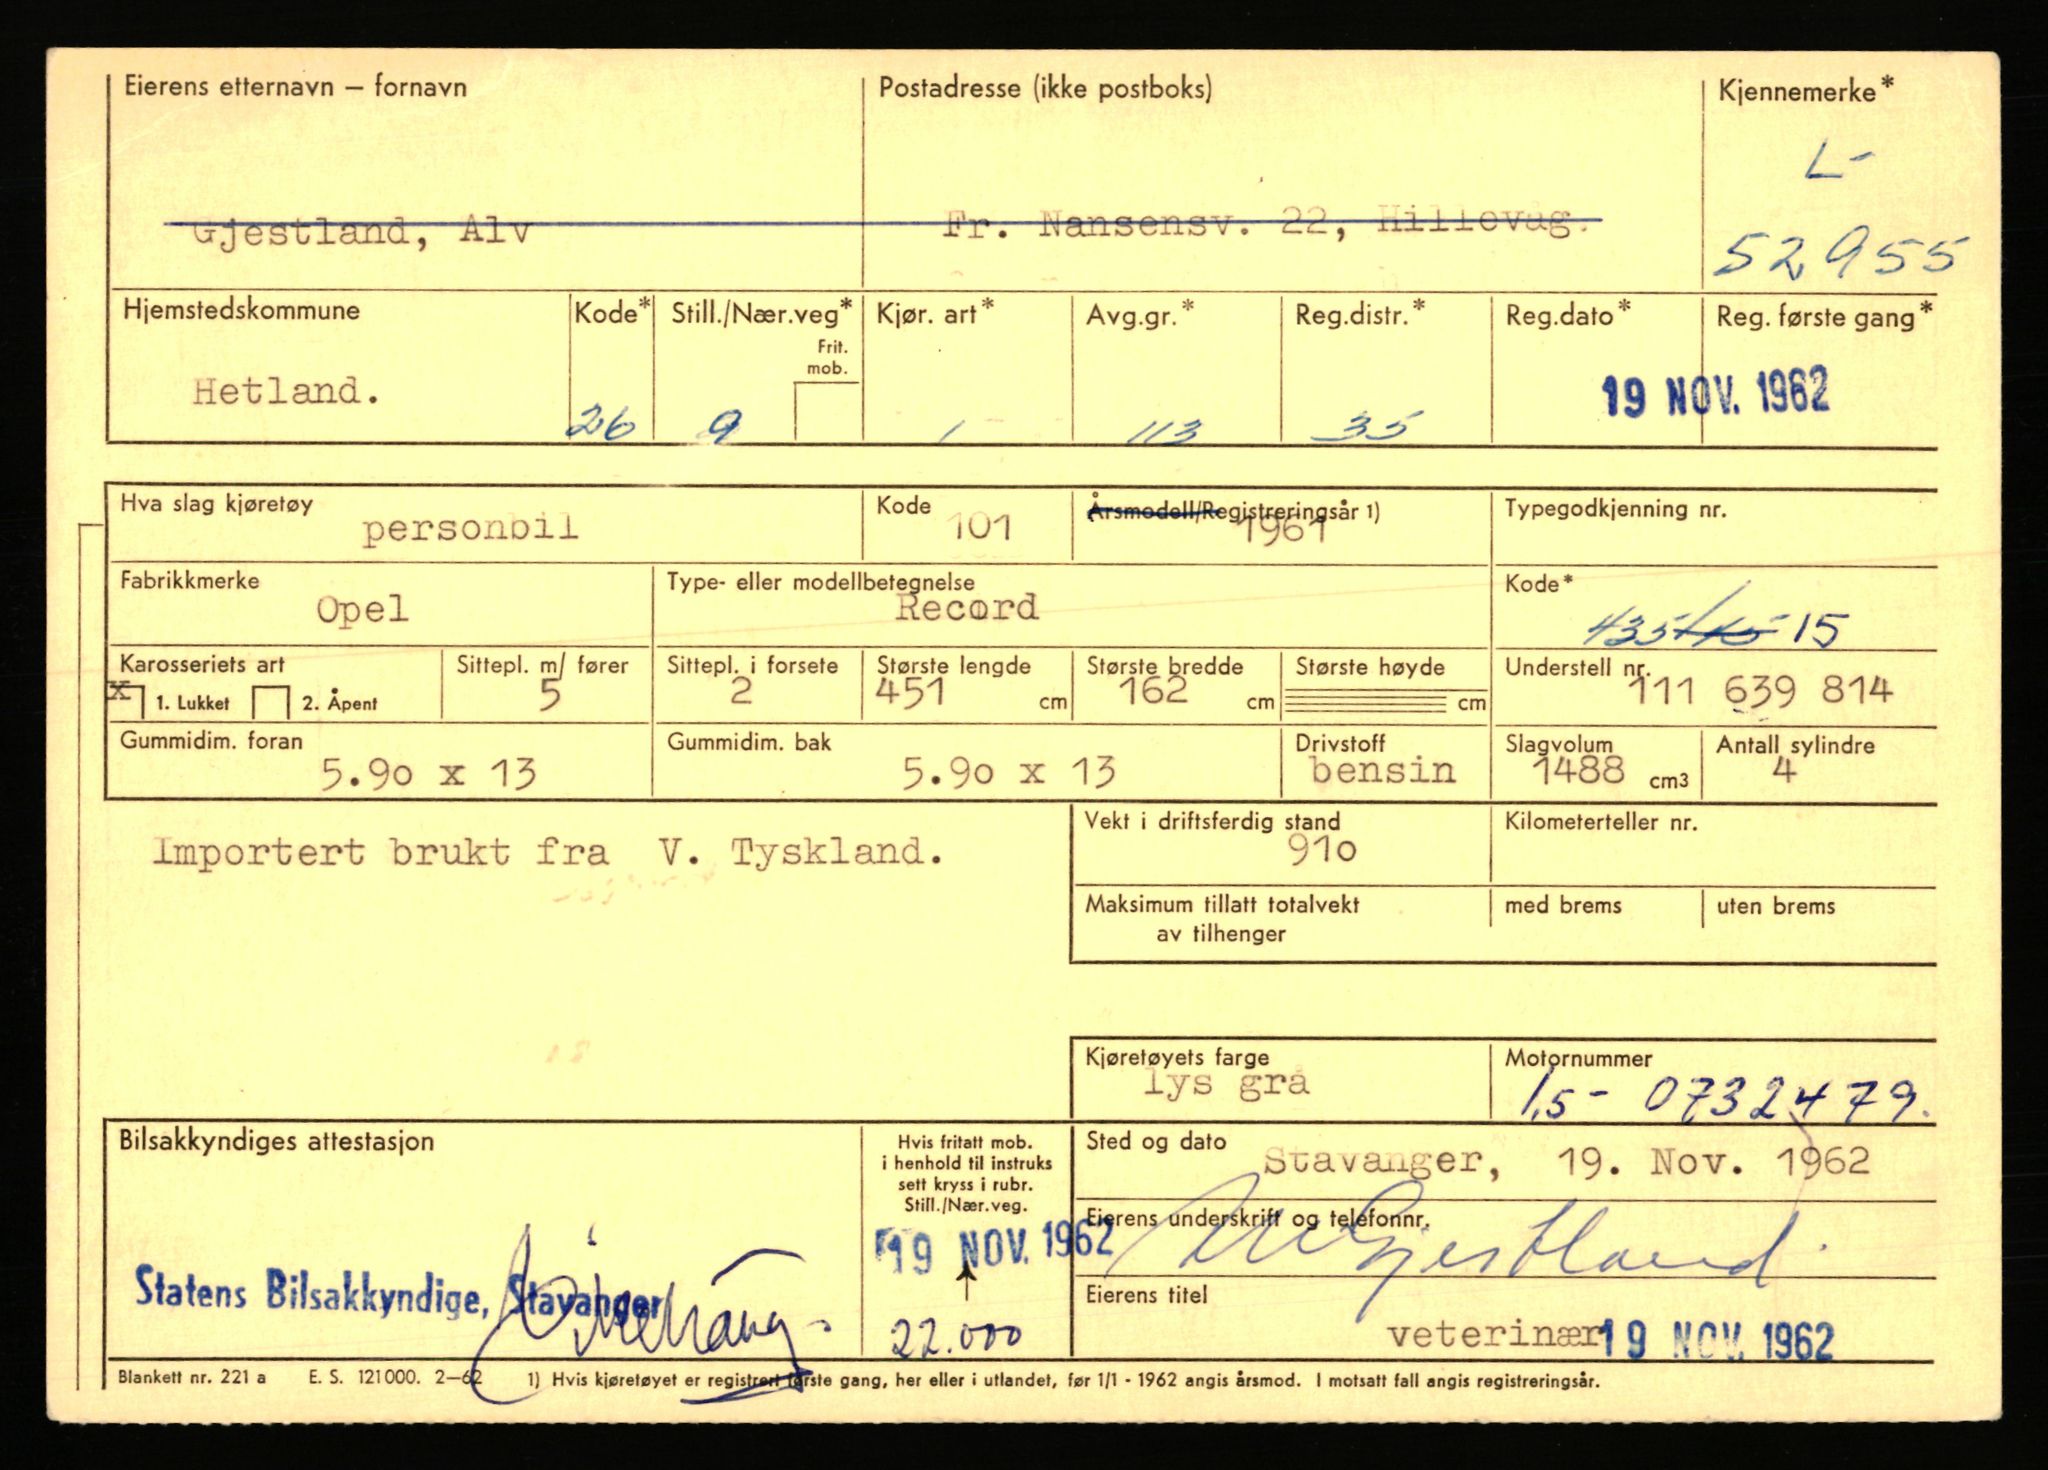 Eierens etternavn – fornavn
Postadresse (ikke postboks)
Kjennemerke*
L-
Gjestland, Alv
Fr. Nansensv. 22, Hillevåg.
52955
Hjemstedskommune
Kode*
Still./Nær.veg*
Kjør. art*
Avg.gr.*
Reg.distr.*
Reg.dato*
Reg. første gang*
Frit.
mob.
Hetland.
26
9
1
113
35
19 NOV. 1962
Hva slag kjøretøy
personbil
Kode
101
Årsmodell/Registreringsår 1)
1961
Typegodkjenning nr.
Fabrikkmerke
Opel
Type- eller modellbetegnelse
Record
Kode*
435/45 15
Karosseriets art
x 1. Lukket 2. Åpent
Sittepl. m/ fører
5
Sittepl. i forsete
2
Største lengde
451 cm
Største bredde
162 cm
Største høyde
cm
Understell nr.
111 639 814
Gummidim. foran
5.90 x 13
Gummidim. bak
5.90 x 13
Drivstoff
bensin
Slagvolum
1488 cm3
Antall sylindre
4
Importert brukt fra V. Tyskland.
Vekt i driftsferdig stand
910
Kilometerteller nr.
Maksimum tillatt totalvekt
av tilhenger
med brems
uten brems
Kjøretøyets farge
lys grå
Motornummer
1,5- 0732479.
Bilsakkyndiges attestasjon
Hvis fritatt mob.
i henhold til instruks
sett kryss i rubr.
Still./Nær.veg.
Sted og dato
Stavanger, 19. Nov. 1962
Eierens underskrift og telefonnr.
19 NOV. 1962
Gjestland
Statens Bilsakkyndige, Stavanger
22.000
Eierens titel
veterinær
19 NOV. 1962
Blankett nr. 221 a E. S. 121000. 2–62 1) Hvis kjøretøyet er registrert første gang, her eller i utlandet, før 1/1 - 1962 angis årsmod. I motsatt fall angis registreringsår.